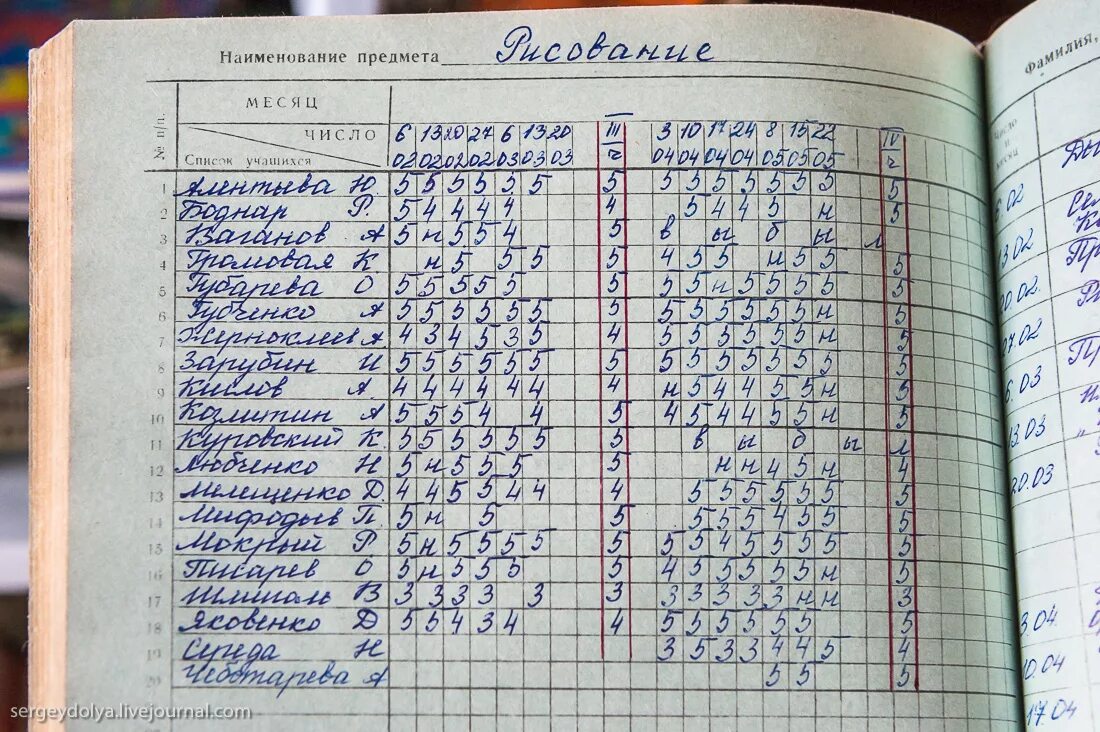 Наименование предмета Рисование
МЕСЯЦ
ЧИСЛО
№ п/п.
Список учащихся
6 13 20 27 6 13 20 III 3 10 17 24 8 15 22 IV
02 02 02 02 03 03 03 ч 04 04 04 04 05 05 05 ч
1 Алентьева Ю. 5 5 5 5 5 5 5 5 5 5 5 5 5 5 5
2 Боднар Р. 5 4 4 4 4 4 5 4 4 5 н 5
3 Ваганов А 5 н 5 5 4 5 в ы б ы л
4 Громовая К н 5 5 5 5 4 5 5 н 5 5 5
5 Губарева О 5 5 5 5 5 5 5 5 н 5 5 5 5 5
6 Губченко А 5 5 5 5 5 5 5 5 5 5 5 5 5 н 5
7 Жерноклеев А 4 3 4 5 3 5 4 5 5 5 5 5 5 н 5
8 Зарубин И 5 5 5 5 5 5 5 5 5 5 5 5 5 5 5
9 Кислов А. 4 4 4 4 4 4 4 н 5 4 4 5 5 н 5
10 Козлитин А 5 5 5 4 4 5 4 5 4 4 5 5 н 5
11 Куровский К. 5 5 5 5 5 5 5 в ы б ы л
12 Любченко Н 5 н 5 5 5 5 н н 4 5 н 4
13 Мелещенко Д. 4 4 5 5 4 4 4 5 5 5 5 5 5 5
14 Мифодьев П. 5 н 5 5 5 5 5 4 5 5 5
15 Мокрый Р 5 н 5 5 5 5 5 5 5 4 5 5 5 5 5
16 Писарев О 5 н 5 5 5 5 4 5 5 5 5 5 н 5
17 В 3 3 3 3 3 3 3 3 3 3 3 н н 3
18 Яковенко Д 5 5 4 3 4 4 5 5 5 5 5 5 5
19 Середа Н 3 5 3 3 4 4 5 4
20 Чеботарева А 5 5 5
Фамилия,
13.02
20.02
27.02
6.03
13.03
20.03
3.04
10.04
17.04
sergeydolya.livejournal.com